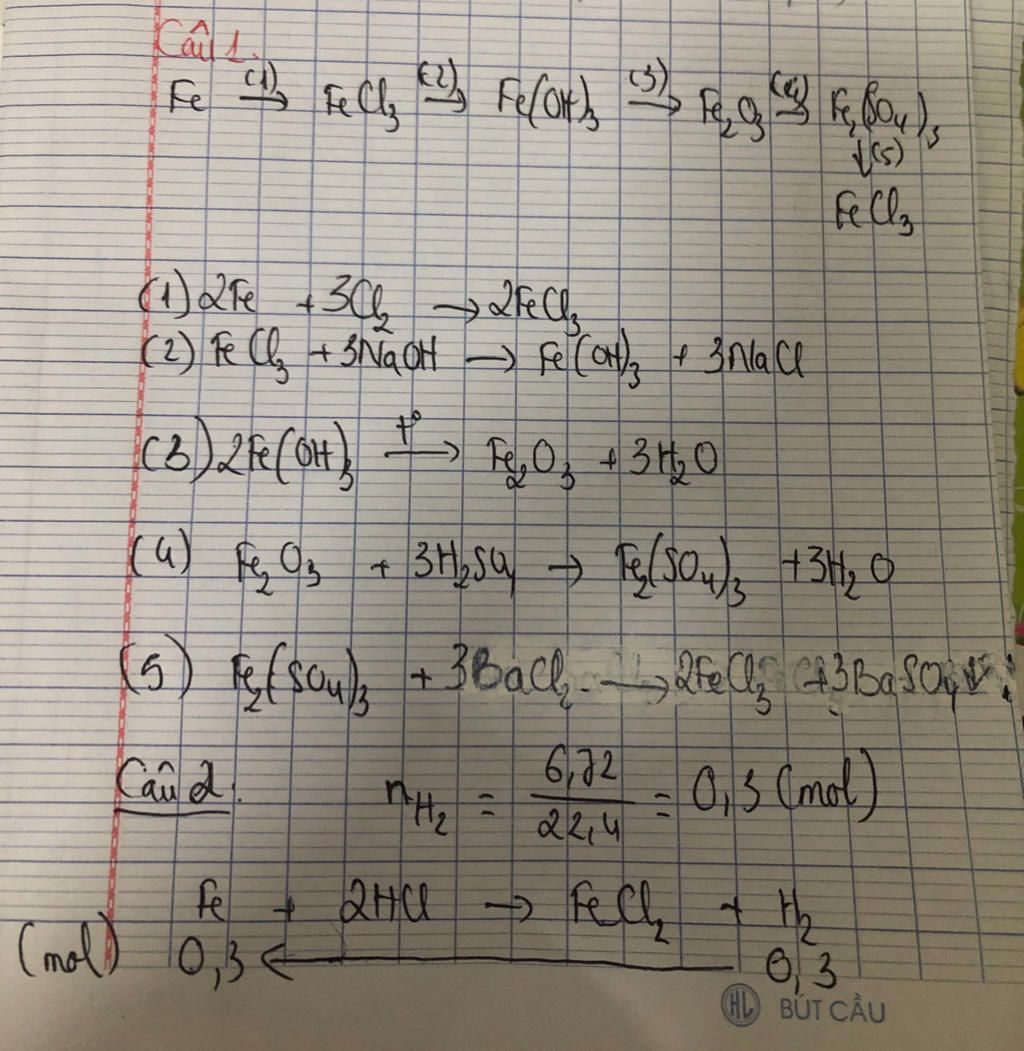 Câu 1.
Fe (1)→ FeCl3 (2)→ Fe(OH)3 (3)→ Fe2O3 (4)→ Fe2(SO4)3
↓(5)
FeCl3
(1) 2Fe + 3Cl2 → 2FeCl3
(2) FeCl3 + 3NaOH → Fe(OH)3 + 3NaCl
(3) 2Fe(OH)3 t°→ Fe2O3 + 3H2O
(4) Fe2O3 + 3H2SO4 → Fe2(SO4)3 + 3H2O
(5) Fe2(SO4)3 + 3BaCl2 → 2FeCl3 + 3BaSO4↓
Câu 2. nH2 = 6,72/22,4 = 0,3 (mol)
Fe + 2HCl → FeCl2 + H2
(mol) 0,3 ← 0,3
HL BÚT CẦU